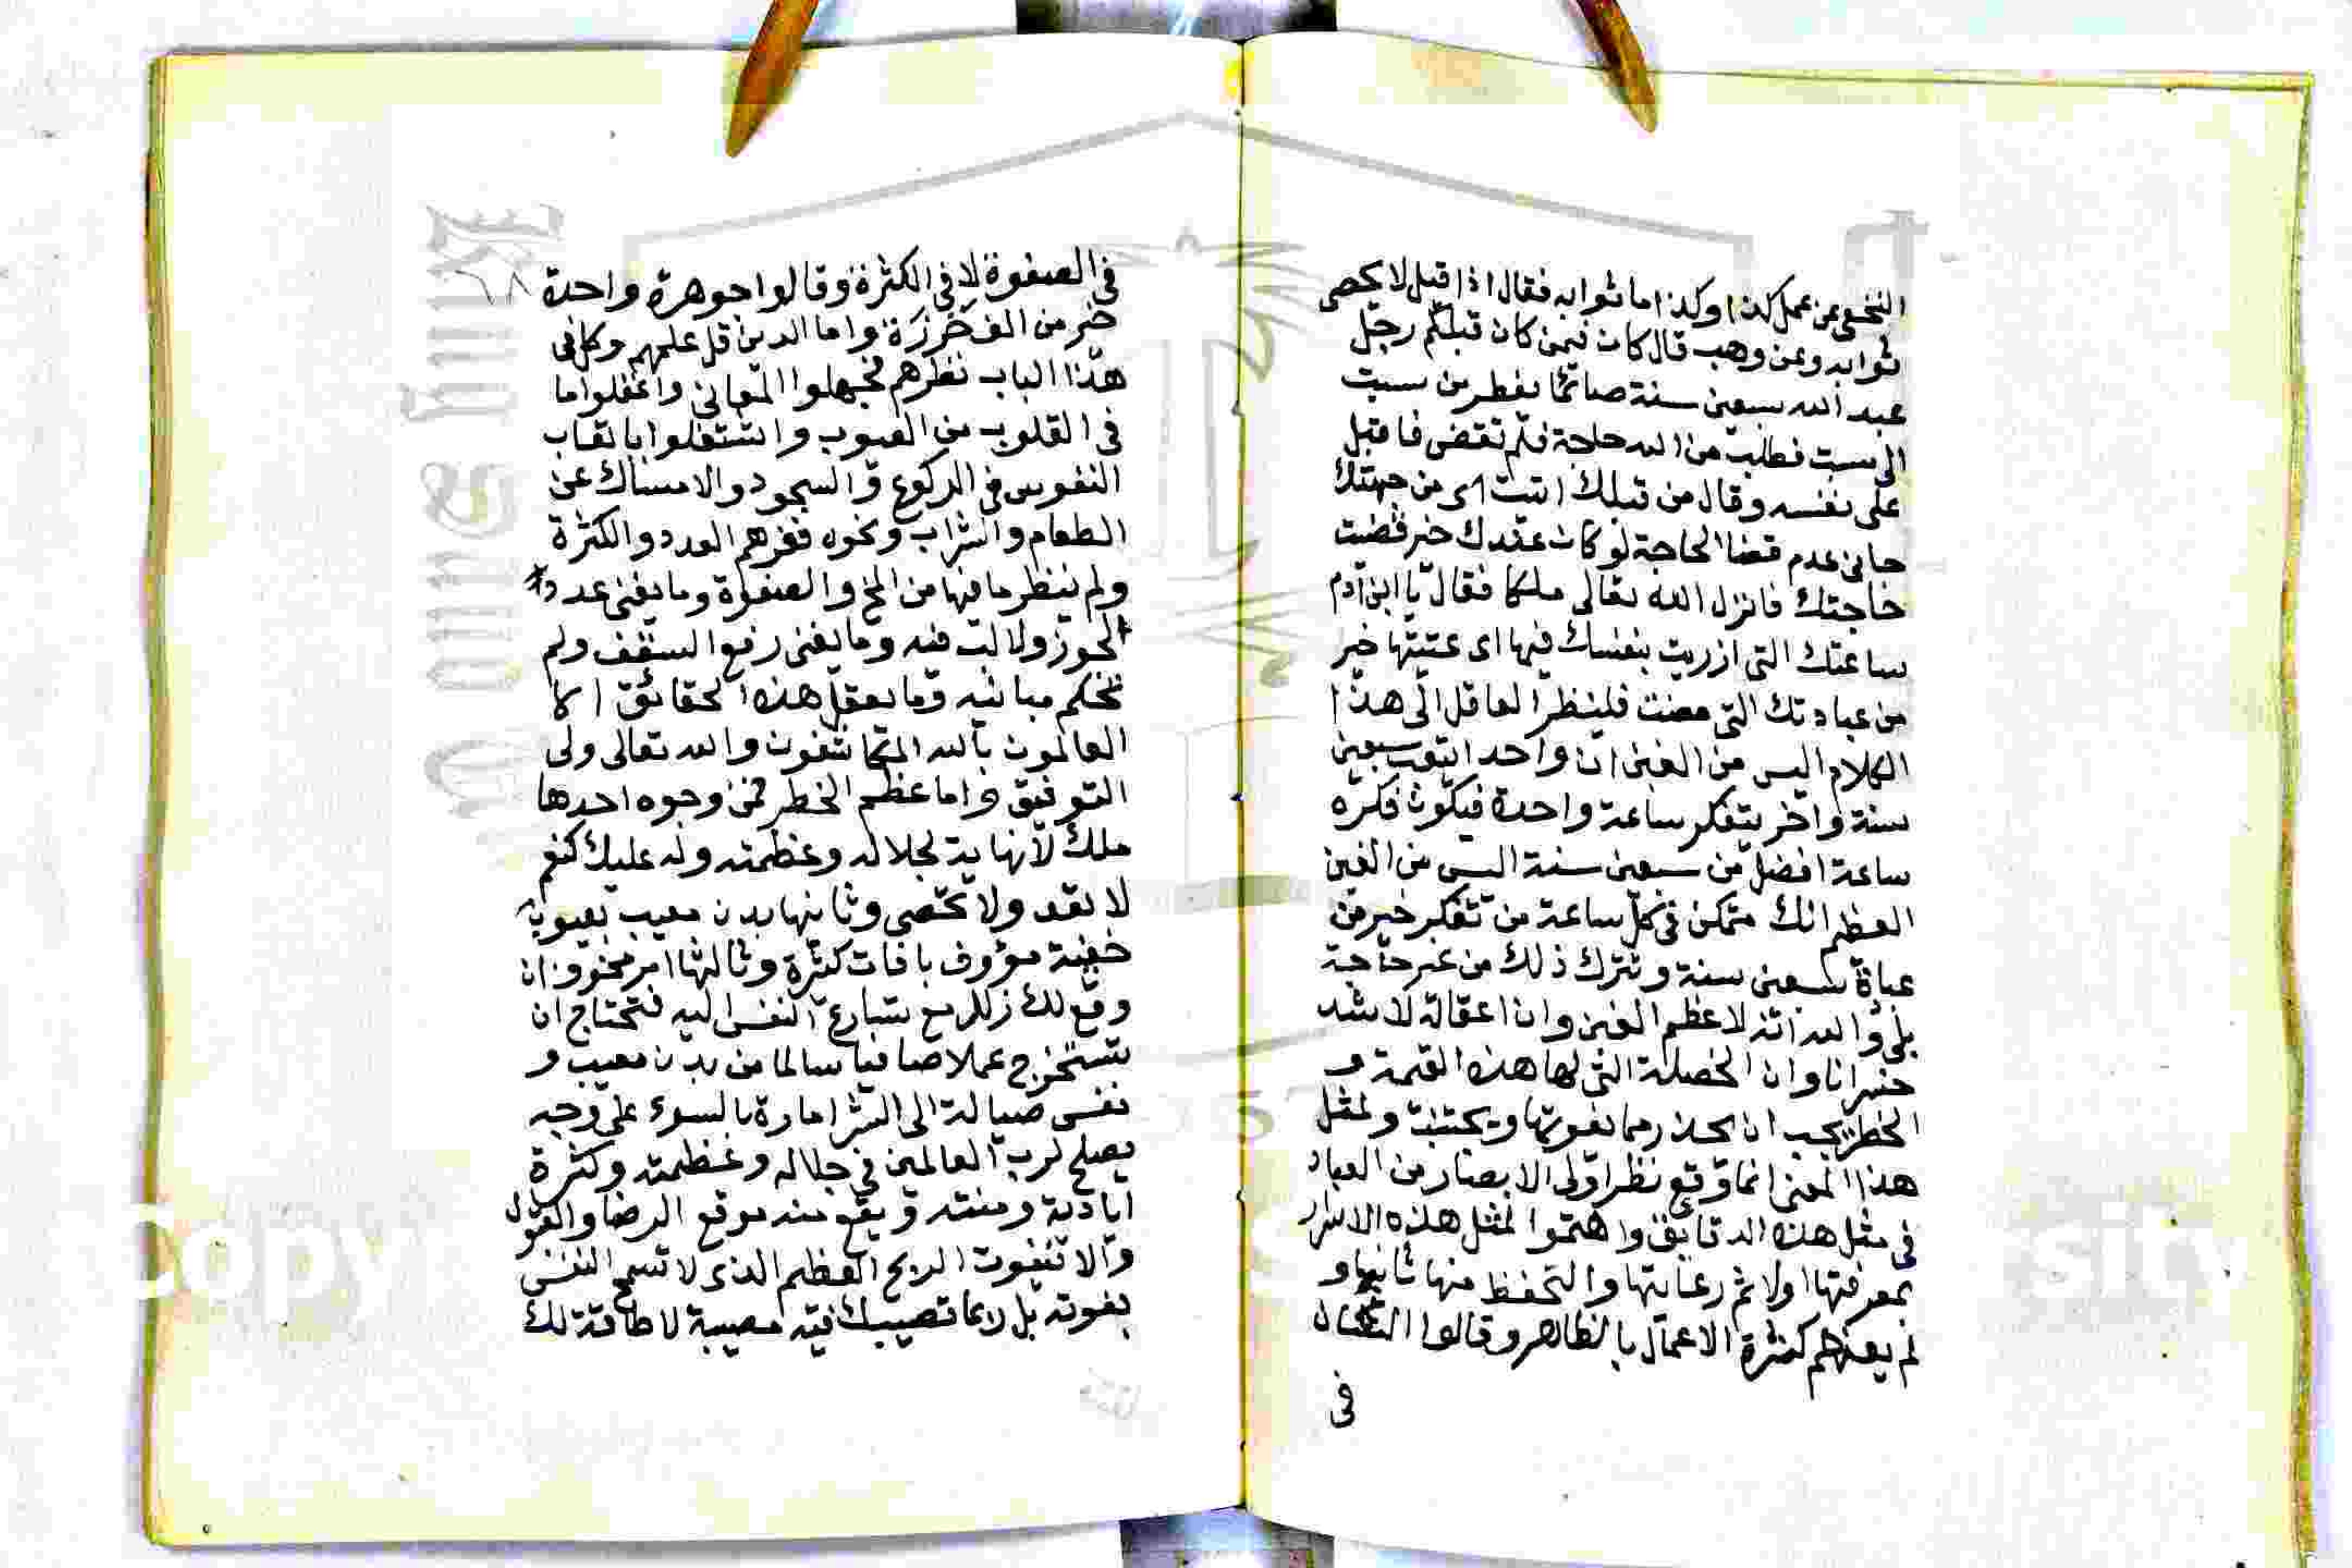 النخعي عن عمل كذا وكذا ما ثوابه فقال اذا قبل لا يحصى
ثوابه وعن وهب قال كان فيمن كان قبلكم رجل
عبد الله سبعين سنة صائما يفطر من سبت
الى سبت فطلب من الله حاجة فلم تقضى فاقبل
على نفسه وقال من قبلك اتيت اى من جهتك
جانى عدم قضا الحاجة لو كان عندك خير قضيت
حاجتك فانزل الله تعالى ملكا فقال يا ابن آدم
ساعتك التى ازريت بنفسك فيها اى عتبتها خير
من عبادتك التى مضت فلينظر العاقل الى هذا
الكلام اليس من الغبن ان واحدا يتعب سبعين
سنة واخر يتفكر ساعة واحدة فيكون فكره
ساعة افضل من سبعين سنة اليس من الغبن
العظيم انك متمكن فى كل ساعة من تفكر خير من
عباة سبعين سنة وتترك ذلك من غير حاجة
بلى والله انه لاعظم الغبن وان اغفاله لاشد
خسرانا وان الخصلة التى لها هذه القيمة و
الخطر يجب ان يحذر مما يفوتها ويجتنب ولمثل
هذا المعنى انما وقع نظر اولى الابصار من العباد
فى مثل هذه الدقايق واهتموا لمثل هذه الاسرار
بمعرفتها اولا ثم رعايتها والتحفظ منها ثانيا و
لم يغنهم كثرة الاعمال بالظاهر وقالوا الشان
فى
في الصفوة لا في الكثرة وقالوا جوهرة واحدة
خير من الف خرزة واما الدين قل علمهم وكل فى
هذا الباب نظرهم فجهلوا المعانى واغفلوا ما
فى القلوب من العيوب واشتغلوا باتعاب
النفوس فى الركوع والسجود والامساك عن
الطعام والشراب ونحوه فغرهم العدد والكثرة
ولم ينظر ما فيها من المخ والصفوة وما يغنى عدد
الجوز ولا لب فيه وما يغنى رفع السقف ولم
تحكم مبانيه وما يعقل هذه الحقائق الا
العالمون بالله المكاشفون والله تعالى ولى
التوفيق واما عظم الخطر فمن وجوه احدها
ملك لا نهاية لجلاله وعظمته وله عليك نعم
لا تعد ولا تحصى وثانيها بدن معيب بعيوب
خفية مؤوف بافات كثرة وثالثها امر مخوف ان
وقع لك زلل مع تسارع النفس اليه فتحتاج ان
تستخرج عملا صافيا سالما من بدن معيب و
نفس ميالة الى الشر امارة بالسوء على وجه
يصلح لرب العالمين فى جلاله وعظمته وكثرة
اياديه ومننه ويقع منه موقع الرضا والقبول
والا تفوت الربح العظيم الذى لا تسمح النفس
بفوته بل ربما تصيبك فيه مصيبة لا طاقة لك